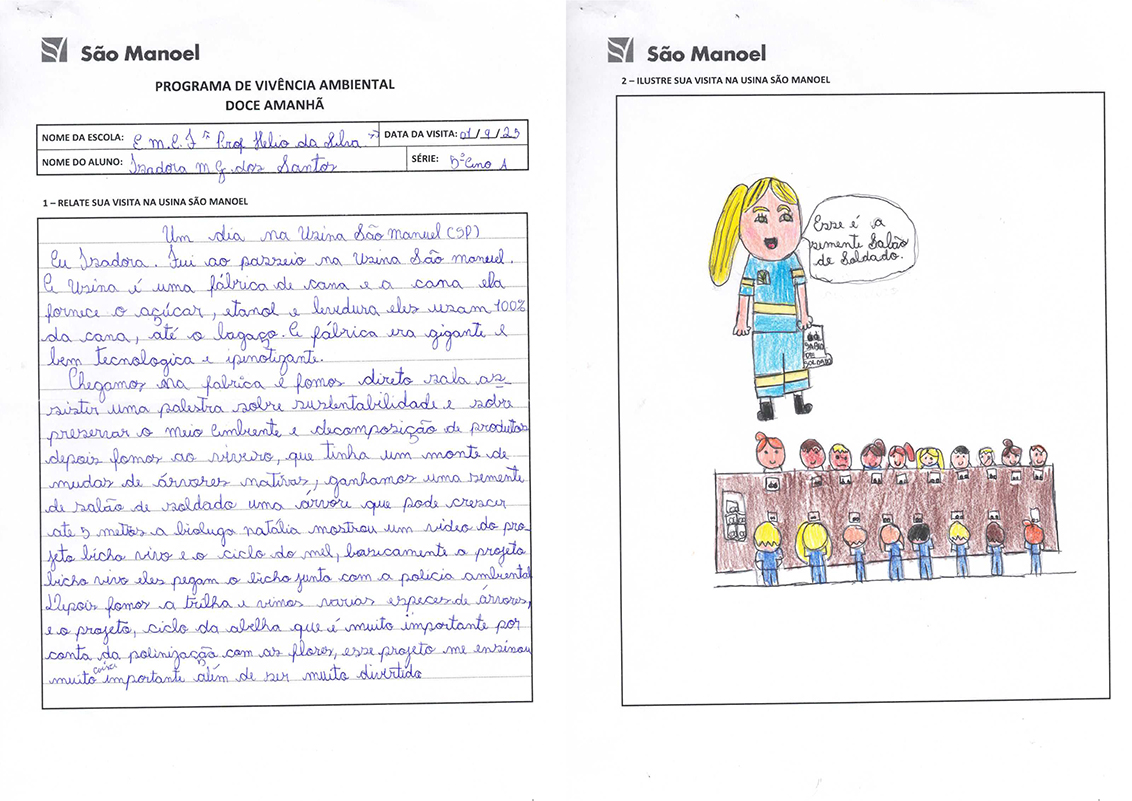 São Manoel
PROGRAMA DE VIVÊNCIA AMBIENTAL
DOCE AMANHÃ
NOME DA ESCOLA: E.M.E.F Prof Helio da Silva
DATA DA VISITA: 01/9/25
NOME DO ALUNO: Isadora M G. dos Santos
SÉRIE: 5º Ano A
1 – RELATE SUA VISITA NA USINA SÃO MANOEL
Um dia na Usina São Manuel (SP)
Eu Isadora. Fui ao passeio na Usina São Manuel.
A Usina é uma fábrica de cana e a cana ela
fornece o açúcar, etanol e levedura eles usam 100%
da cana, até o bagaço. A fábrica era gigante e
bem tecnologica e ipinotizante.
Chegamos na fabrica e fomos direto sala as-
sistir uma palestra sobre sustentabilidade e sobre
preservar o meio Ambiente e decomposição de produtos
depois fomos ao viveiro, que tinha um monte de
mudas de árvores nativas, ganhamos uma semente
de salão de soldado uma árvore que pode crescer
até 5 metos a biologa natália mostrou um video do pro-
jeto bicho vivo e o ciclo do mel, basicamente o projeto
bicho vivo eles pegam o bicho junto com a policia ambiental
Depois fomos a trilha e vimos varias especes de árvores,
e o projeto, ciclo da abelha que é muito importante por
conta da polinização com as flores, esse projeto me ensinou
muito coisa importante além de ser muito divertido
São Manoel
2 – ILUSTRE SUA VISITA NA USINA SÃO MANOEL
Esse é a
semente Salão
de Soldado.
SABÃO
DE
SOLDADO